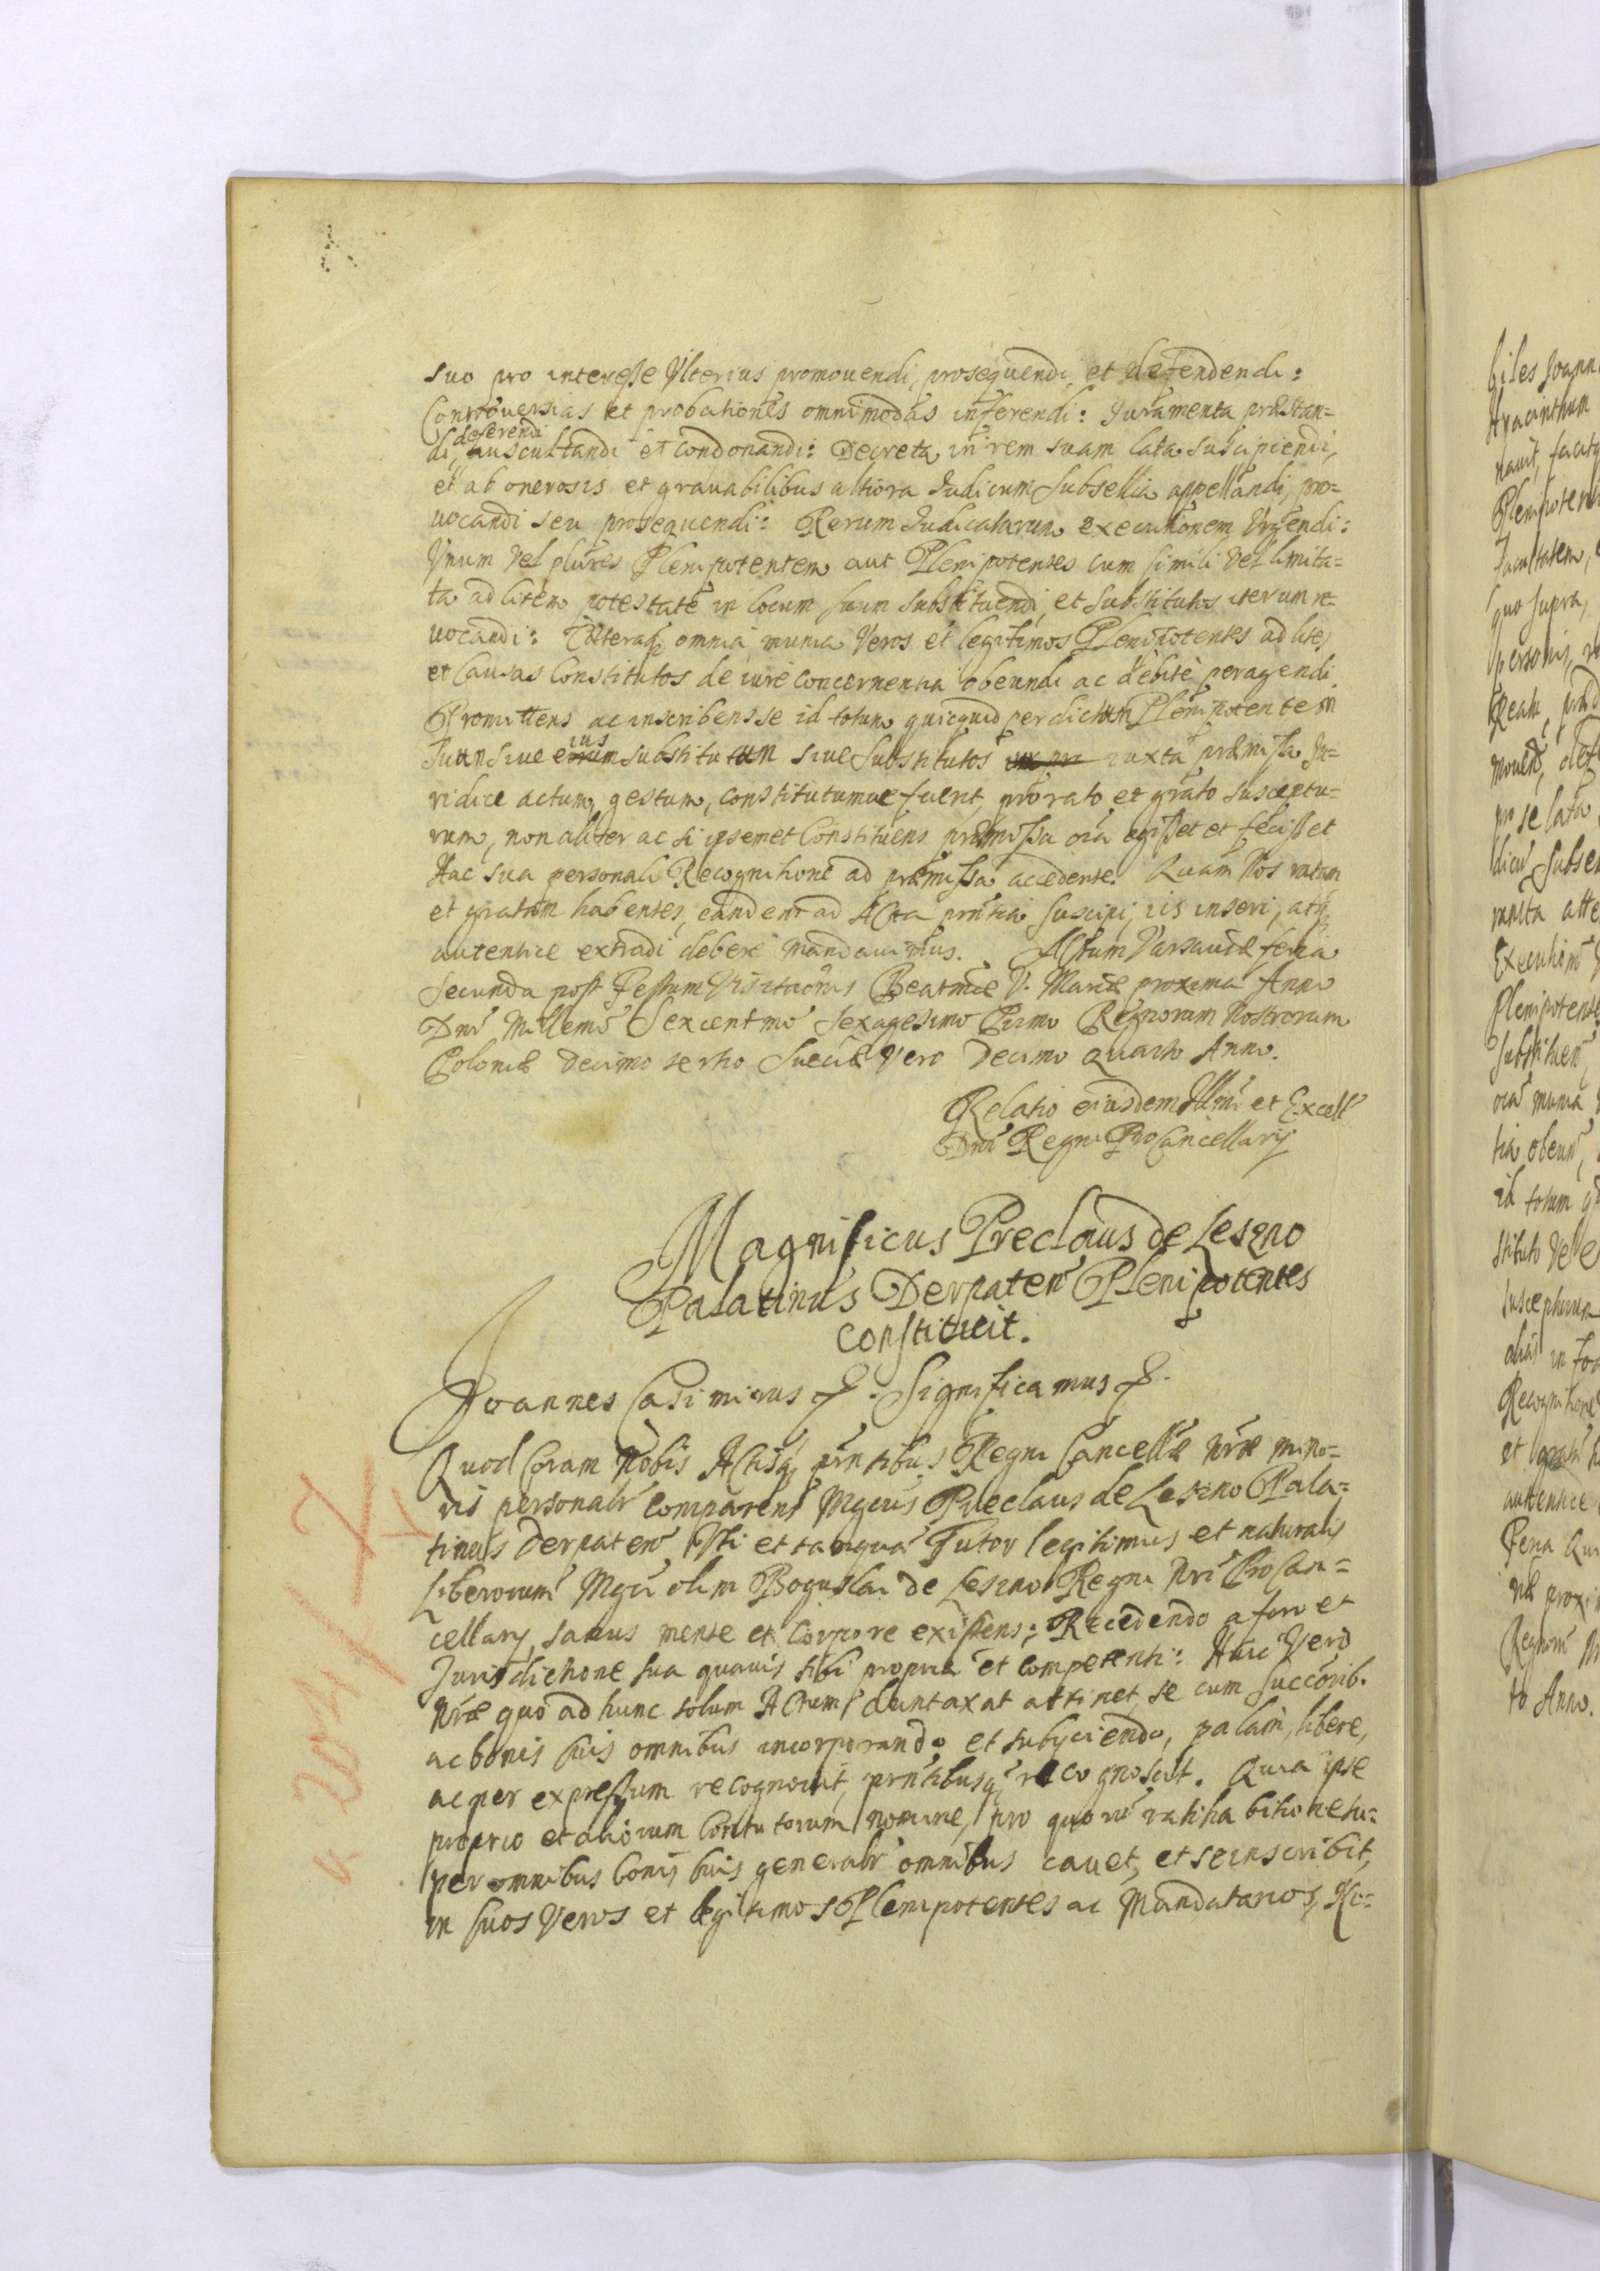 suo pro interesse Ulterius promovendi, prosequendi, et defendendi:
Controversias et probationes omnimodas inferendi: Juramenta præstan-
di, deferendi auscultandi et condonandi: Decreta in rem suam lata suscipiendi,
et ab onerosis et gravabilibus altiora Iudicum Subsellia appellandi, pro-
vocandi seu prosequendi: Rerum Iudicatarum executionem Urgendi:
Unum vel plures Plenipotentem aut Plenipotentes cum simili vel limita-
ta ad litem potestate in locum suum substituendi, et substitutos iterum re-
vocandi: Cæteraq omnia munia Veros et legitimos Plenipotentes ad lites
et Causas Constitutos de iure concernentia obeundi ac debite peragendi.
Promittens ac inscribens se id totum quicquid per dictum Plenipotentem
suum sive eius substitutum sive Substitutos iuxta præmissa Ju-
ridice actum, gestum, constitutumve fuerit, pro rato et grato susceptu-
rum, non aliter ac si ipsemet Constituens præmissa oia egisset et fecisset
Hac sua personali Recognitione ad præmissa accedente. Quam Nos ratam
et gratam habentes, eandem ad Acta prntia suscipi, iis inseri, atq
autentice extradi debere mandavimus. Actum Varsaviæ feria
secunda post Festum Visitaonis Beatmæ V. Mariæ proxima Anno
Dni Millemo Sexcentmo Sexagesimo Primo Regnorum Nostrorum
Poloniæ Decimo tertio Sueciæ vero Decimo Quarto Anno.
Relatio eiusdem Illmi et Excell
Dni Regni ProCancellarij
Magnificus Preclaus de Leszno
Palatinus Derpaten Plenipotentes
constituit.
Joannes Casimirus &. Significamus &.
Quod Coram Nobis Actisq prntibus Regni Cancellæ Nræ mino-
ris personalr comparens Mgcus Preclaus de Leszno Pala-
tinus Derpaten Uti et tanqua Tutor legitimus et naturalis
Liberorum Mgci olim Boguslai de Leszno Regni Nri ProCan-
cellarij, sanus mente et Corpore existens; Recedendo a foro et
Jurisdictione sua quavis sibi propria et competenti: Huic vero
Nræ quo ad hunc solum Actum duntaxat attinet, se cum succorib.
ac bonis suis omnibus incorporando et subijciendo, palam, libere,
ac per expressum recognovit, prntibusq recognoscit. Quia ipse
proprio et aliorum Contutorum nomine, pro quoru ratihabitione su-
per omnibus bonis suis generalr omnibus cavet, et se inscribit,
in suos Veros et legitimos Plenipotentes ac Mandatarios, No-